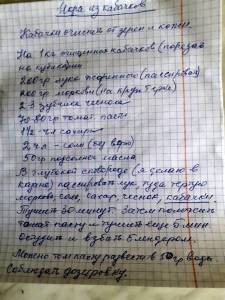 Икра из кабачков
Кабачки очистить от зерен и кожи.
На 1 кг очищенных кабачков (порезать
на кубики)
200 гр лука жаренного (пассеровка)
200 гр моркови (на круп. терке)
2-3 зубчика чеснока
70-80 гр томат пасты
1/2 ч.л сахара
2 ч.л - соли (без верха)
50 гр подсолнеч масла
В глубокой сковороде (я делаю в
казане) пассеровать лук туда тертую
морковь, соль, сахар чеснок, кабачки.
Тушить 30 минут. Затем положить
томат пасту и тушить еще 5 мин
Остудить и взбить блендером.
Можно том пасту развести в гр воды
Соблюдать дозировку.